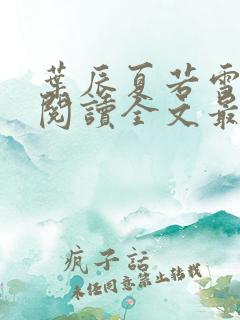 葉辰夏若雪
閱讀全文最
疯子話
未經同意禁止轉載